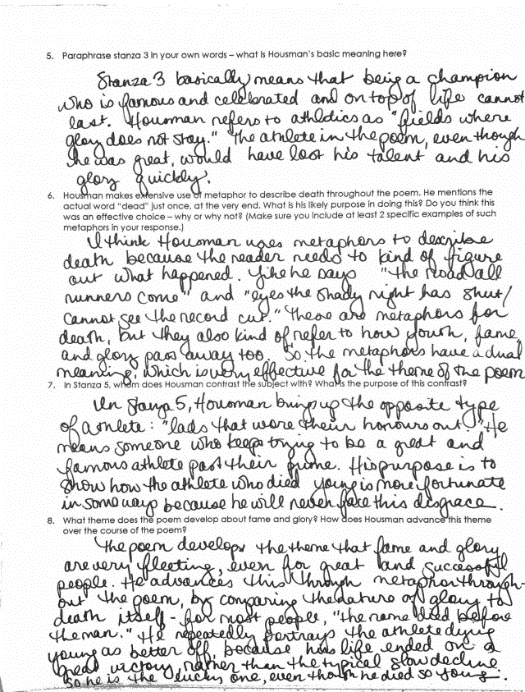 5. Paraphrase stanza 3 in your own words – what is Housman's basic meaning here?
Stanza 3 basically means that being a champion
who is famous and celebrated and on top of life cannot
last. Housman refers to athletics as "fields where
glory does not stay." The athlete in the poem, even though
he was great, would have lost his talent and his
glory quickly.
6. Housman makes extensive use of metaphor to describe death throughout the poem. He mentions the
actual word "dead" just once, at the very end. What is his likely purpose in doing this? Do you think this
was an effective choice – why or why not? (Make sure you include at least 2 specific examples of such
metaphors in your response.)
I think Housman uses metaphors to describe
death because the reader needs to kind of figure
out what happened. Like he says "the road all
runners come" and "eyes the shady night has shut/
cannot see the record cut." These are metaphors for
death, but they also kind of refer to how youth, fame,
and glory pass away too. So the metaphors have a dual
meaning, which is very effective for the theme of the poem
7. In Stanza 5, whom does Housman contrast the subject with? What is the purpose of this contrast?
In Stanza 5, Housman brings up the opposite type
of athlete: "lads that wore their honours out." He
means someone who keeps trying to be a great and
famous athlete past their prime. His purpose is to
show how the athlete who died young is more fortunate
in some ways because he will never face this disgrace.
8. What theme does the poem develop about fame and glory? How does Housman advance this theme
over the course of the poem?
The poem develops the theme that fame and glory
are very fleeting, even for great and successful
people. He advances this through metaphor through-
out the poem, by comparing the nature of glory to
death itself - for most people, "the name died before
the man." He repeatedly portrays the athlete dying
young as better off, because his life ended on a
great victory, rather than the typical slow decline.
So he is the lucky one, even though he died so young.